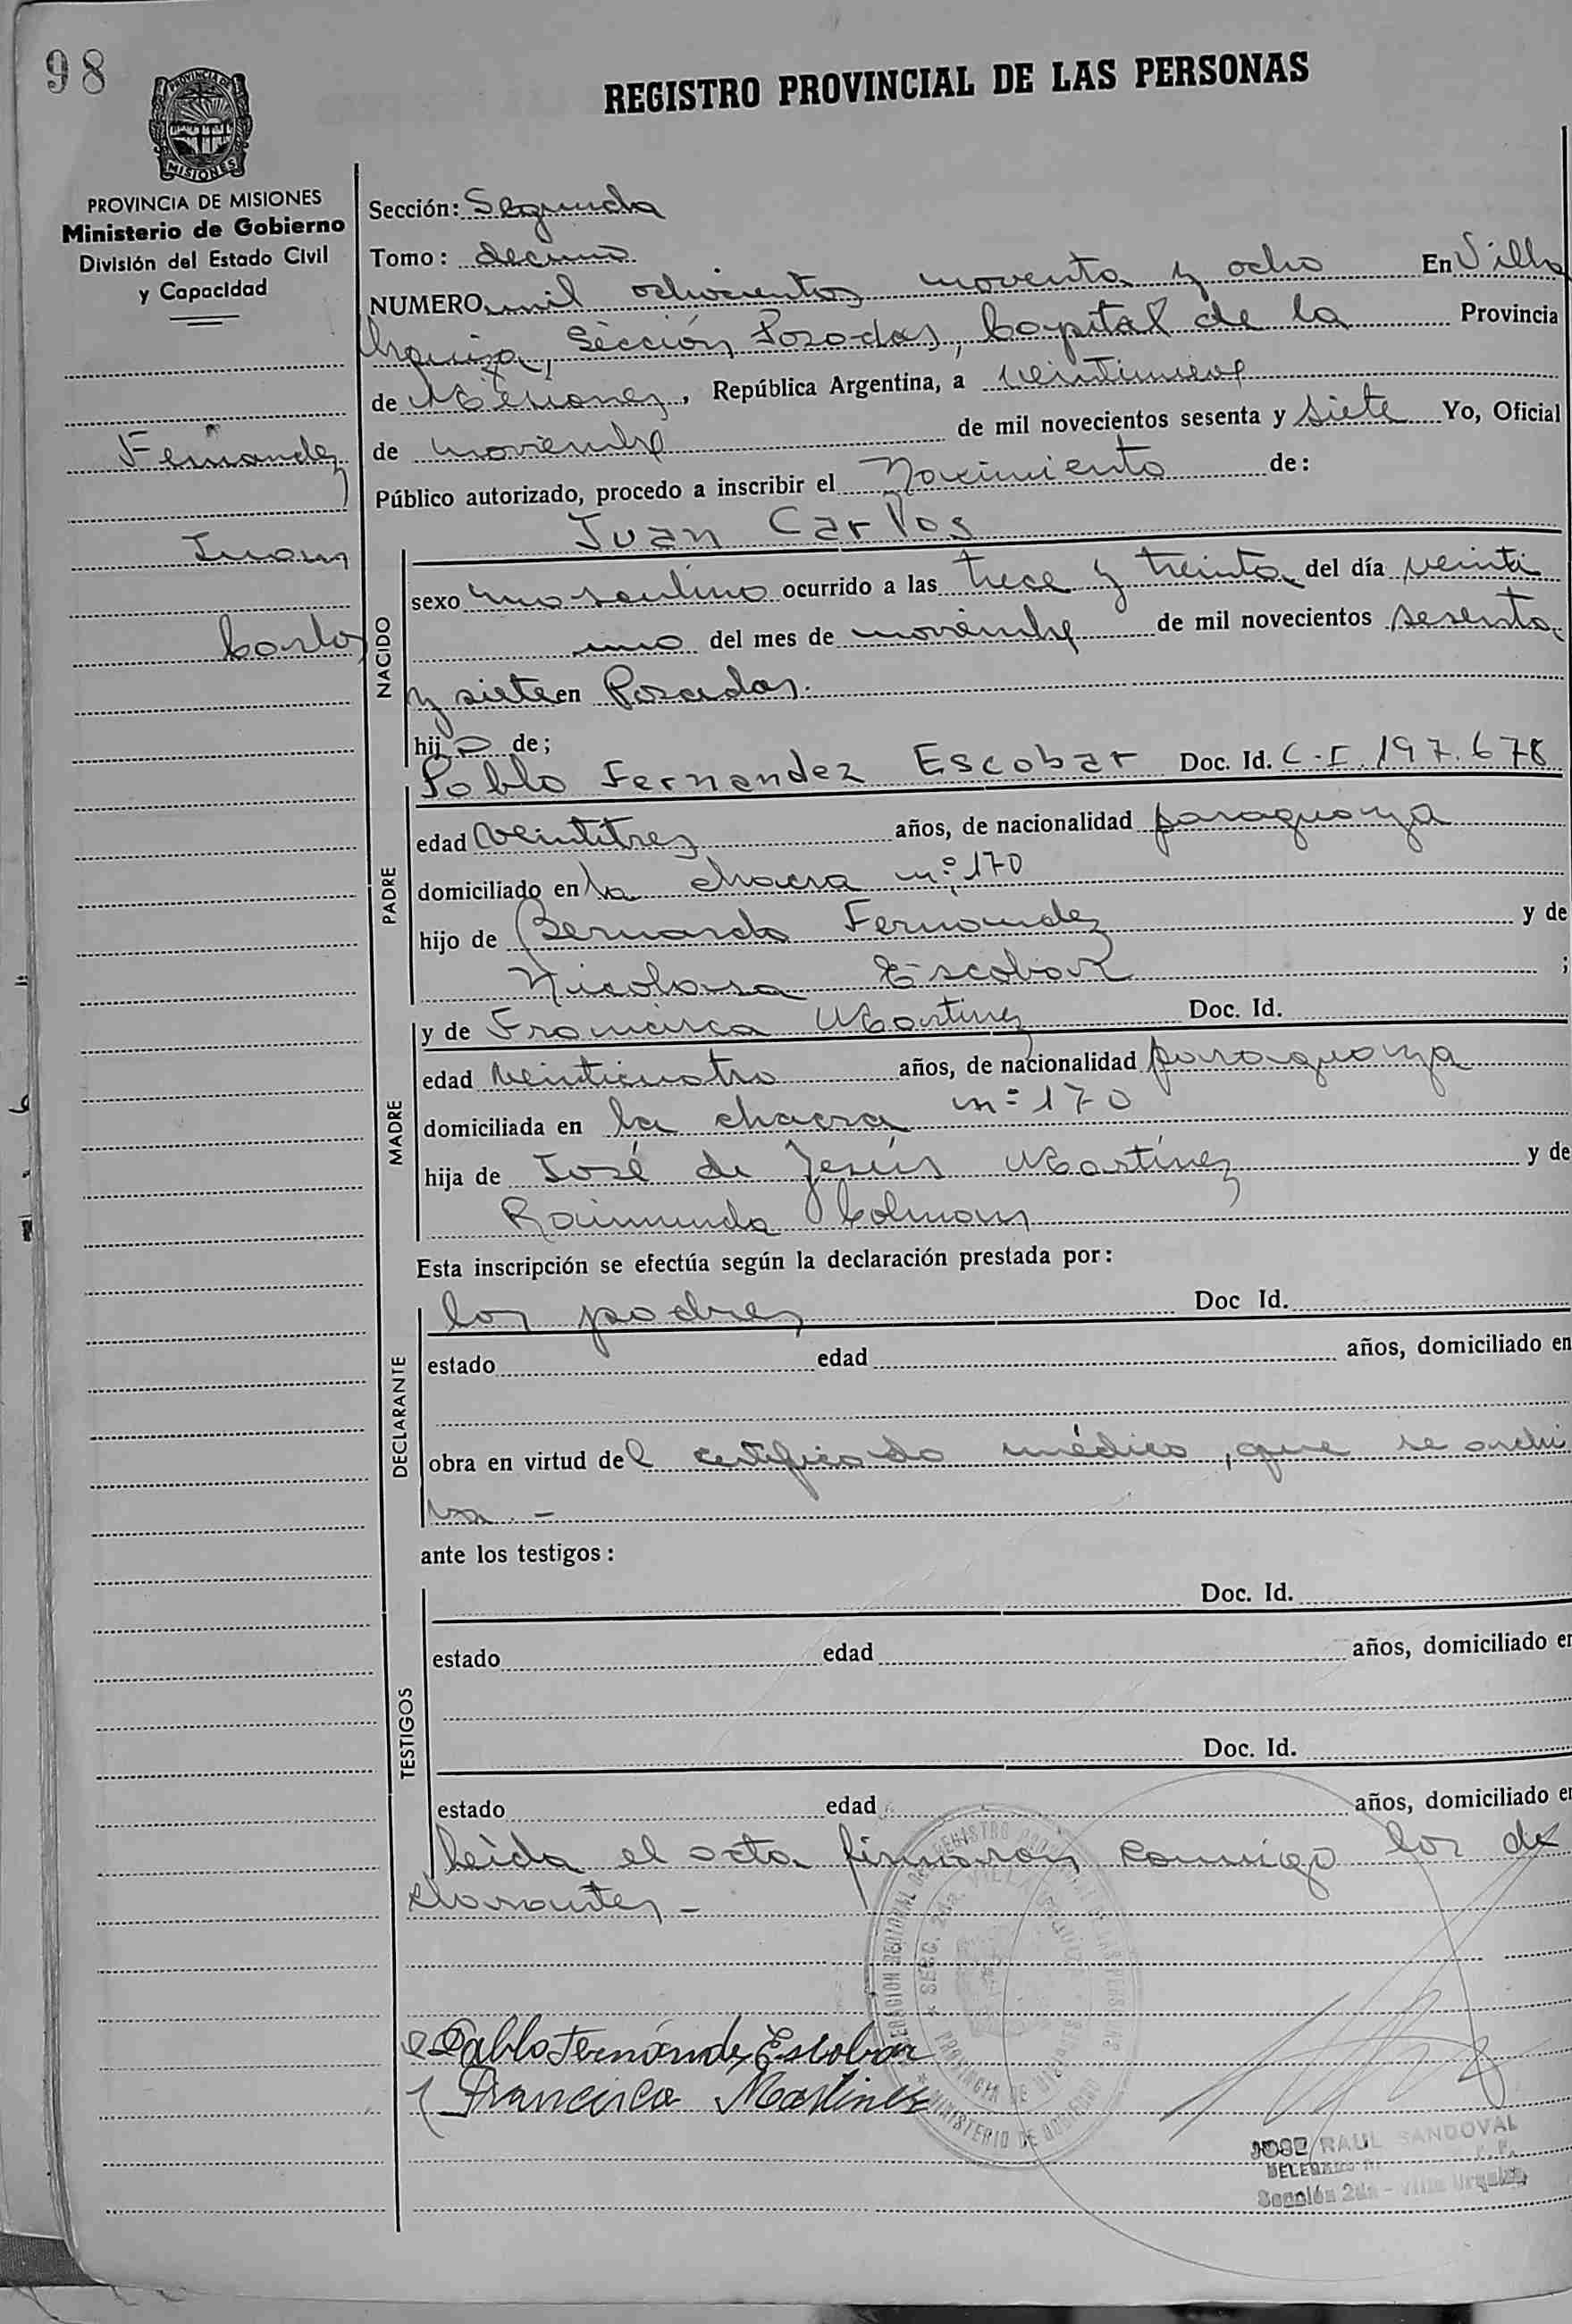 98
REGISTRO PROVINCIAL DE LAS PERSONAS
PROVINCIA DE MISIONES
Ministerio de Gobierno
División del Estado Civil
y Capacidad
Fernandez
Juan
Carlos
Sección: Segunda
Tomo: decimo
NUMERO mil ochocientos noventa y ocho En Villa
Urquiza, Sección Posadas, Capital de la Provincia
de Misiones, República Argentina, a veintinueve
de noviembre de mil novecientos sesenta y siete Yo, Oficial
Público autorizado, procedo a inscribir el Nacimiento de:
Juan Carlos
NACIDO
sexo masculino ocurrido a las trece y treinta del día veinti
uno del mes de noviembre de mil novecientos sesenta
y siete en Posadas.
hijo de;
Pablo Fernandez Escobar Doc. Id. C.I. 197.678
PADRE
edad veintitres años, de nacionalidad paraguaya
domiciliado en la chacra nº 170
hijo de Bernardo Fernández y de
Nicolasa Escobar ;
MADRE
y de Francisca Martinez Doc. Id.
edad veinticuatro años, de nacionalidad paraguaya
domiciliada en la chacra nº 170
hija de José de Jesús Martínez y de
Raimunda Colman
Esta inscripción se efectúa según la declaración prestada por:
DECLARANTE
los padres Doc Id.
estado edad años, domiciliado en
obra en virtud del certificado médico, que se archi
va. -
ante los testigos:
TESTIGOS
Doc. Id.
estado edad años, domiciliado en
Doc. Id.
estado edad años, domiciliado en
Leida el acta firmaron conmigo los de
clarantes -
Pablo Fernández Escobar
Francisca Martinez
MINISTERIO DE GOBIERNO
PROVINCIA DE MISIONES
SECC. 2da. VILLA URQUIZA
JOSE RAUL SANDOVAL
DELEGADO
Sección 2da - Villa Urquiza